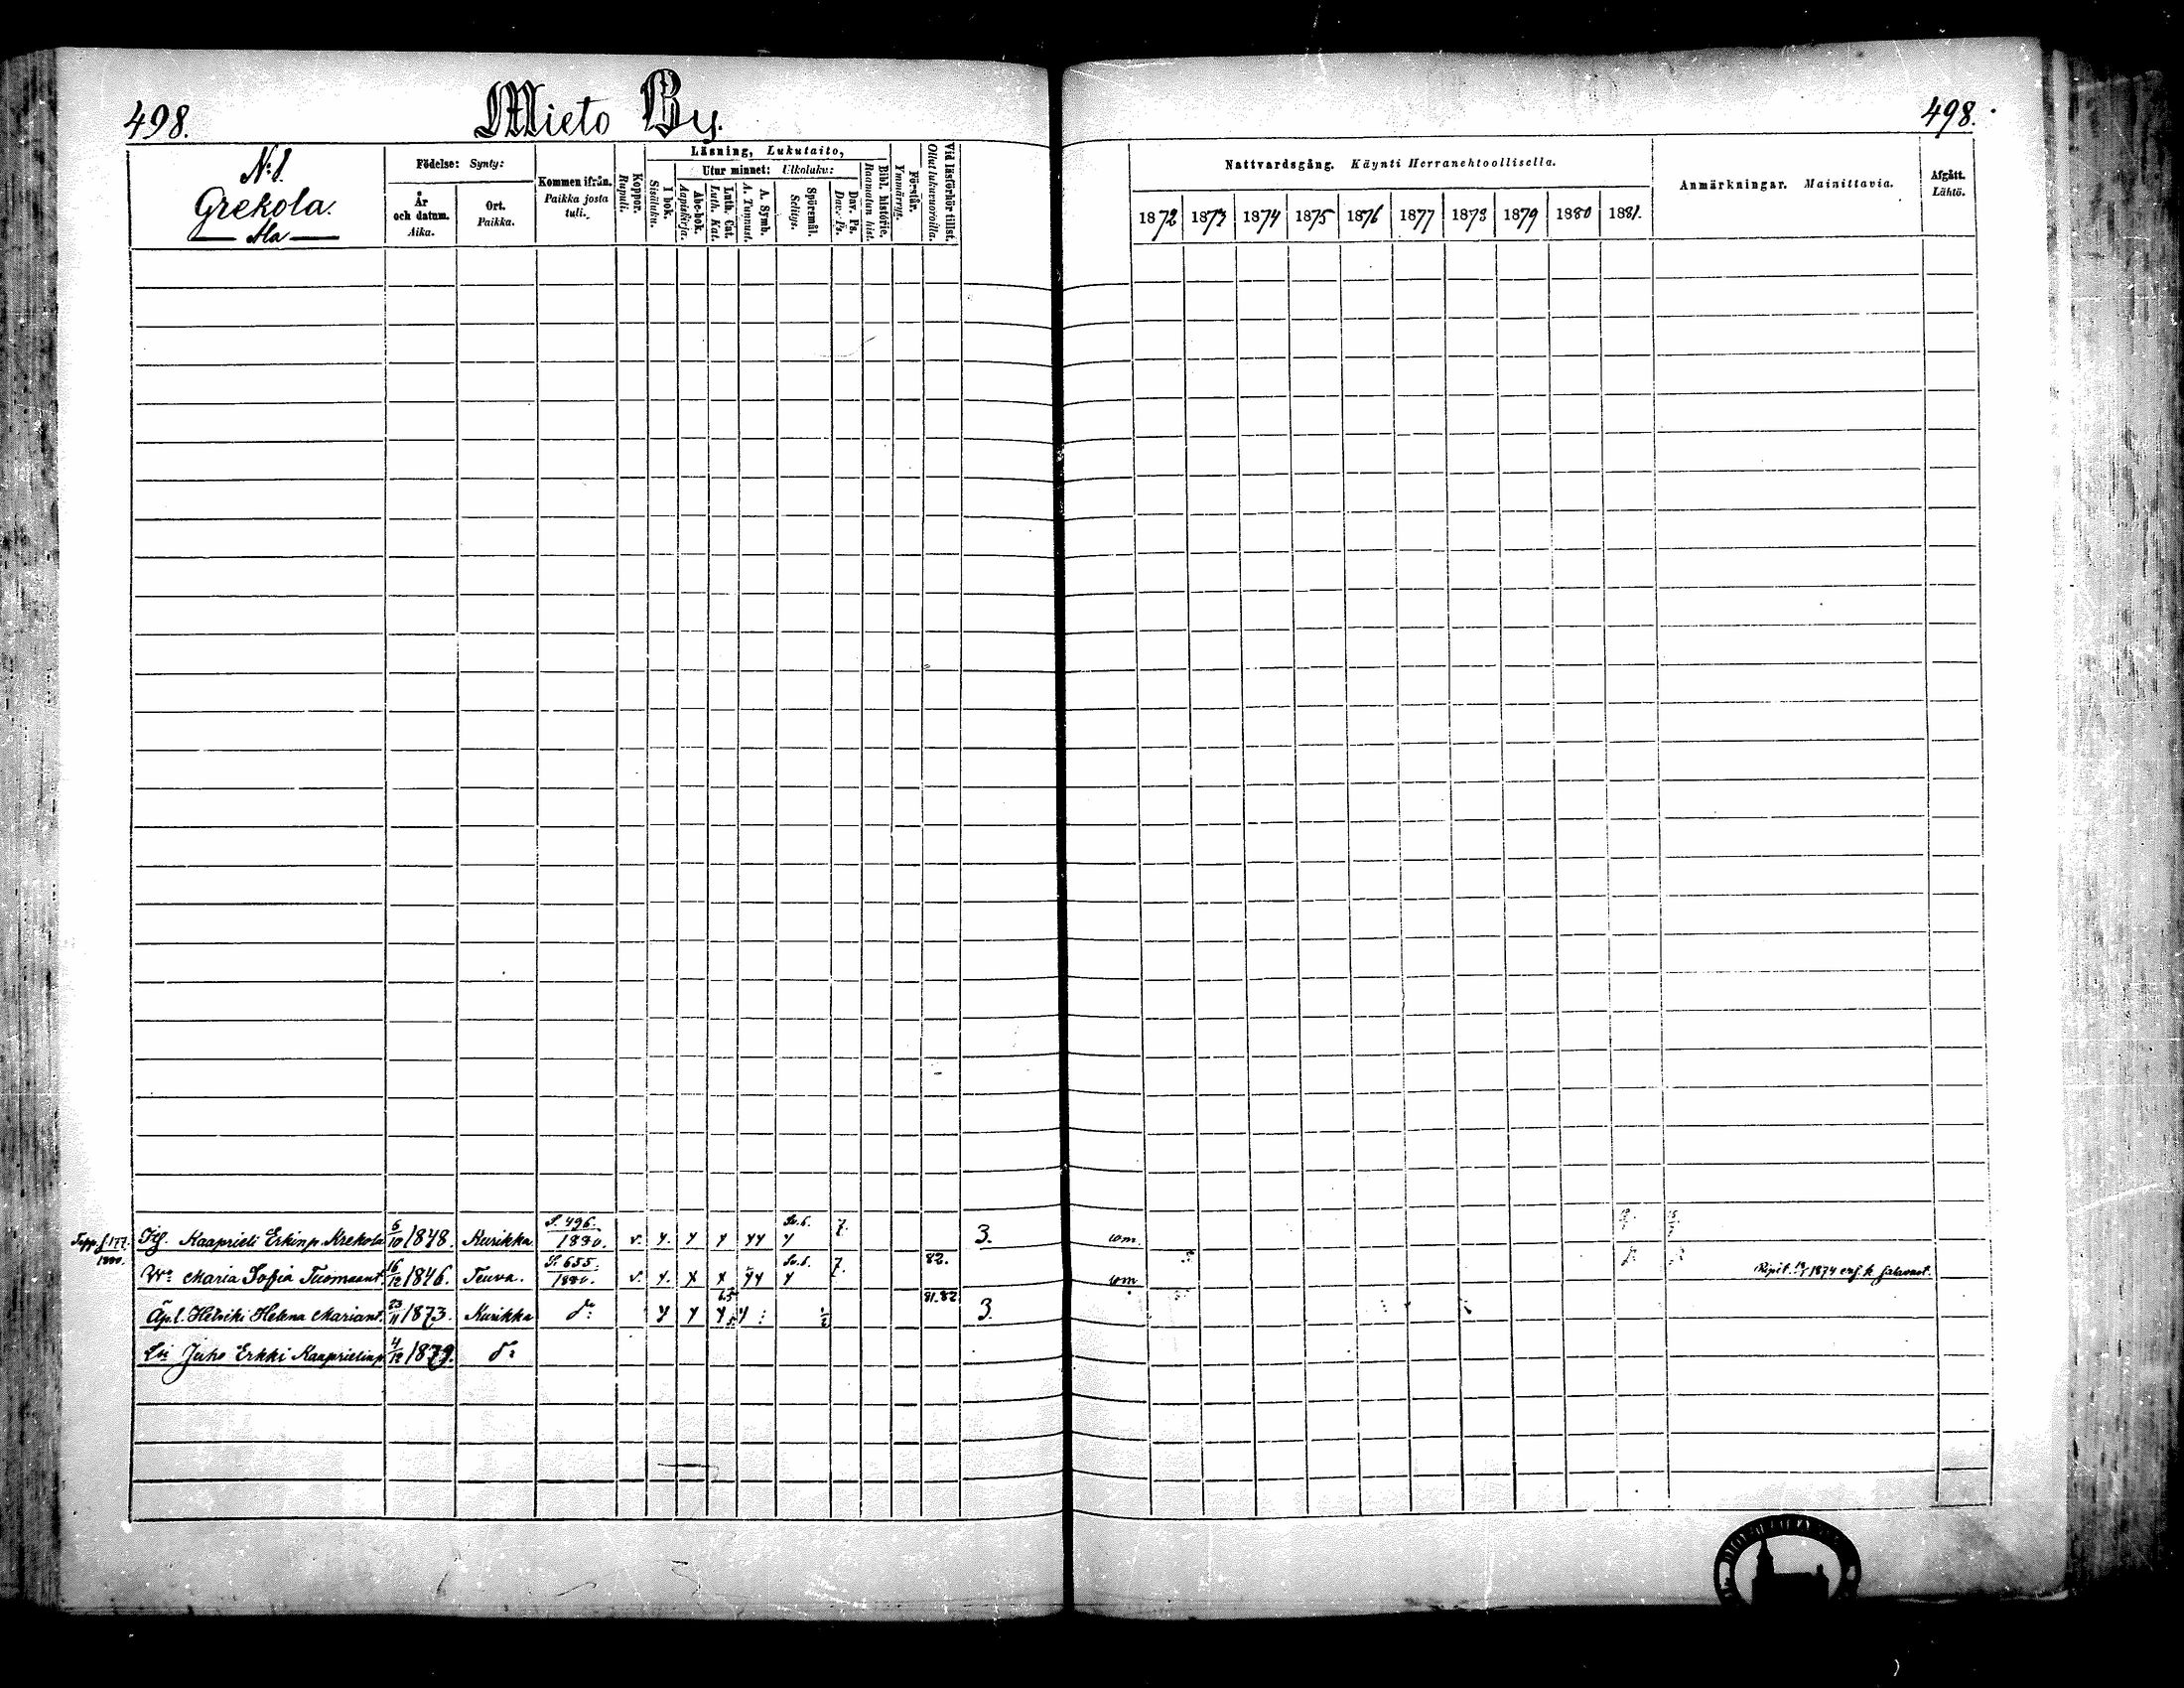 498. Mieto By. 498.
N:8. Grekola. Ala
Födelse: Synty:
År och datum. Aika.
Ort. Paikka.
Kommen ifrån. Paikka josta tuli.
Koppor. Rupuli.
Läsning, Lukutaito,
I bok. Sisäluku.
Utur minnet: Ulkoluku:
Abc-bok. Aapiskirja.
Luth. Cat. Luth. Kat.
A. Symb. A. Tunnust.
Spörsmål. Selitys.
Dav. Ps. Dav. Ps.
Bibl. historie. Raamatun hist.
Förstår. Ymmärrys.
Vid läsförhör tillst. Ollut lukuvuoroilla.
Nattvardsgång. Käynti Herranehtoollisella.
1872 1873 1874 1875 1876 1877 1878 1879 1880 1881.
Anmärkningar. Mainittavia.
Afgått. Lähtö.
Kaaprieli Erkinp. Krekola 6/10 1848. Kurikka S. 496. 1880. v. y. y y yy y 7. 3.
Maria Sofia Tuomaant. 16/12 1846. Teuva. S. 655. 1880. v. y. x x yy y 7. 82.
Äp. l. Heiniki Helena Mariant. 23/11 1873. Kurikka do: y y y y 81.82 3.
Juho Erkki Kaaprielinp. 4/12 1879. do: